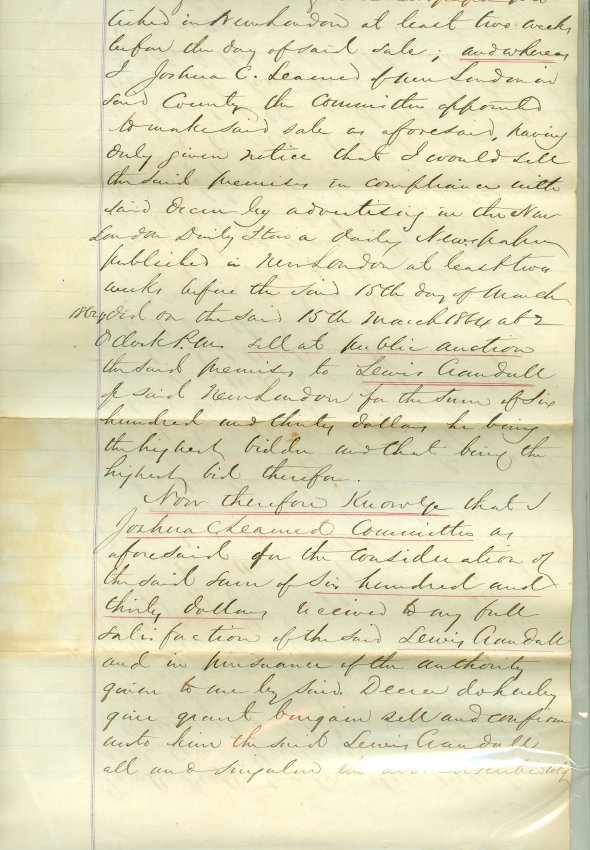 tised in New London at least two weeks
before the day of said sale; and whereas
I Joshua C. Learned of New London in
said County the Committee appointed
to make said sale as aforesaid, having
duly given notice that I would sell
the said premises in compliance with
said Decree by advertising in the New
London Daily Star a daily Newspaper
published in New London at least two
weeks before the said 15th day of March
1864, did on the said 15th March 1864 at 2
O clock P.M. sell at public auction
the said premises to Lewis Crandall
of said New London for the sum of Six
hundred and thirty dollars he being
the highest bidder and that being the
highest bid therefor.
Now therefore Know Ye that I
Joshua C Learned Committee as
aforesaid for the consideration of
the said sum of Six hundred and
thirty dollars received to my full
satisfaction of the said Lewis Crandall
and in pursuance of the authority
given to me by said Decree do hereby
give grant bargain sell and confirm
unto him the said Lewis Crandall
all and singular the